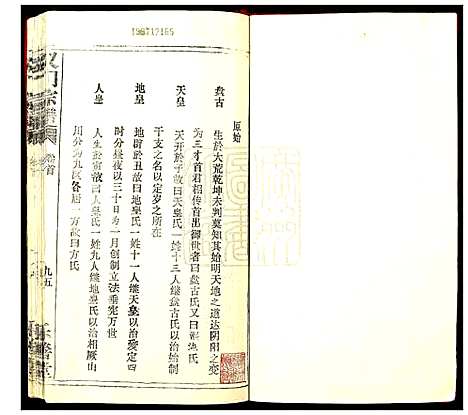 198712165
原始
盘古
生於大荒乾坤未判莫知其始明天地之道达阴阳之变
为三才首君相传首出御世者曰盘古氏又曰混沌氏
天皇
天开於子故曰天皇氏一姓十三人继盘古氏以治始制
干支之名以定岁之所在
地皇
地辟於丑故曰地皇氏一姓十一人继天皇以治爰定四
时分昼夜以三十日为一月创制立法垂宪万世
人皇
人生於寅故曰人皇氏一姓九人继地皇氏以治相厥山
川分为九区各居一方故曰方氏
宗谱
卷首
九五